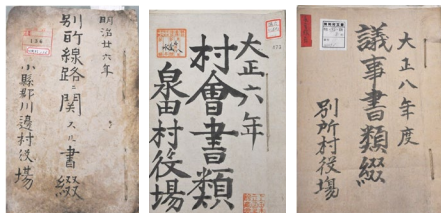 明治廿六年
別所線路ニ関スル書綴
小縣郡川邊村役場
大正六年
村會書類
泉田村役場
大正八年度
議事書類綴
別所村役場